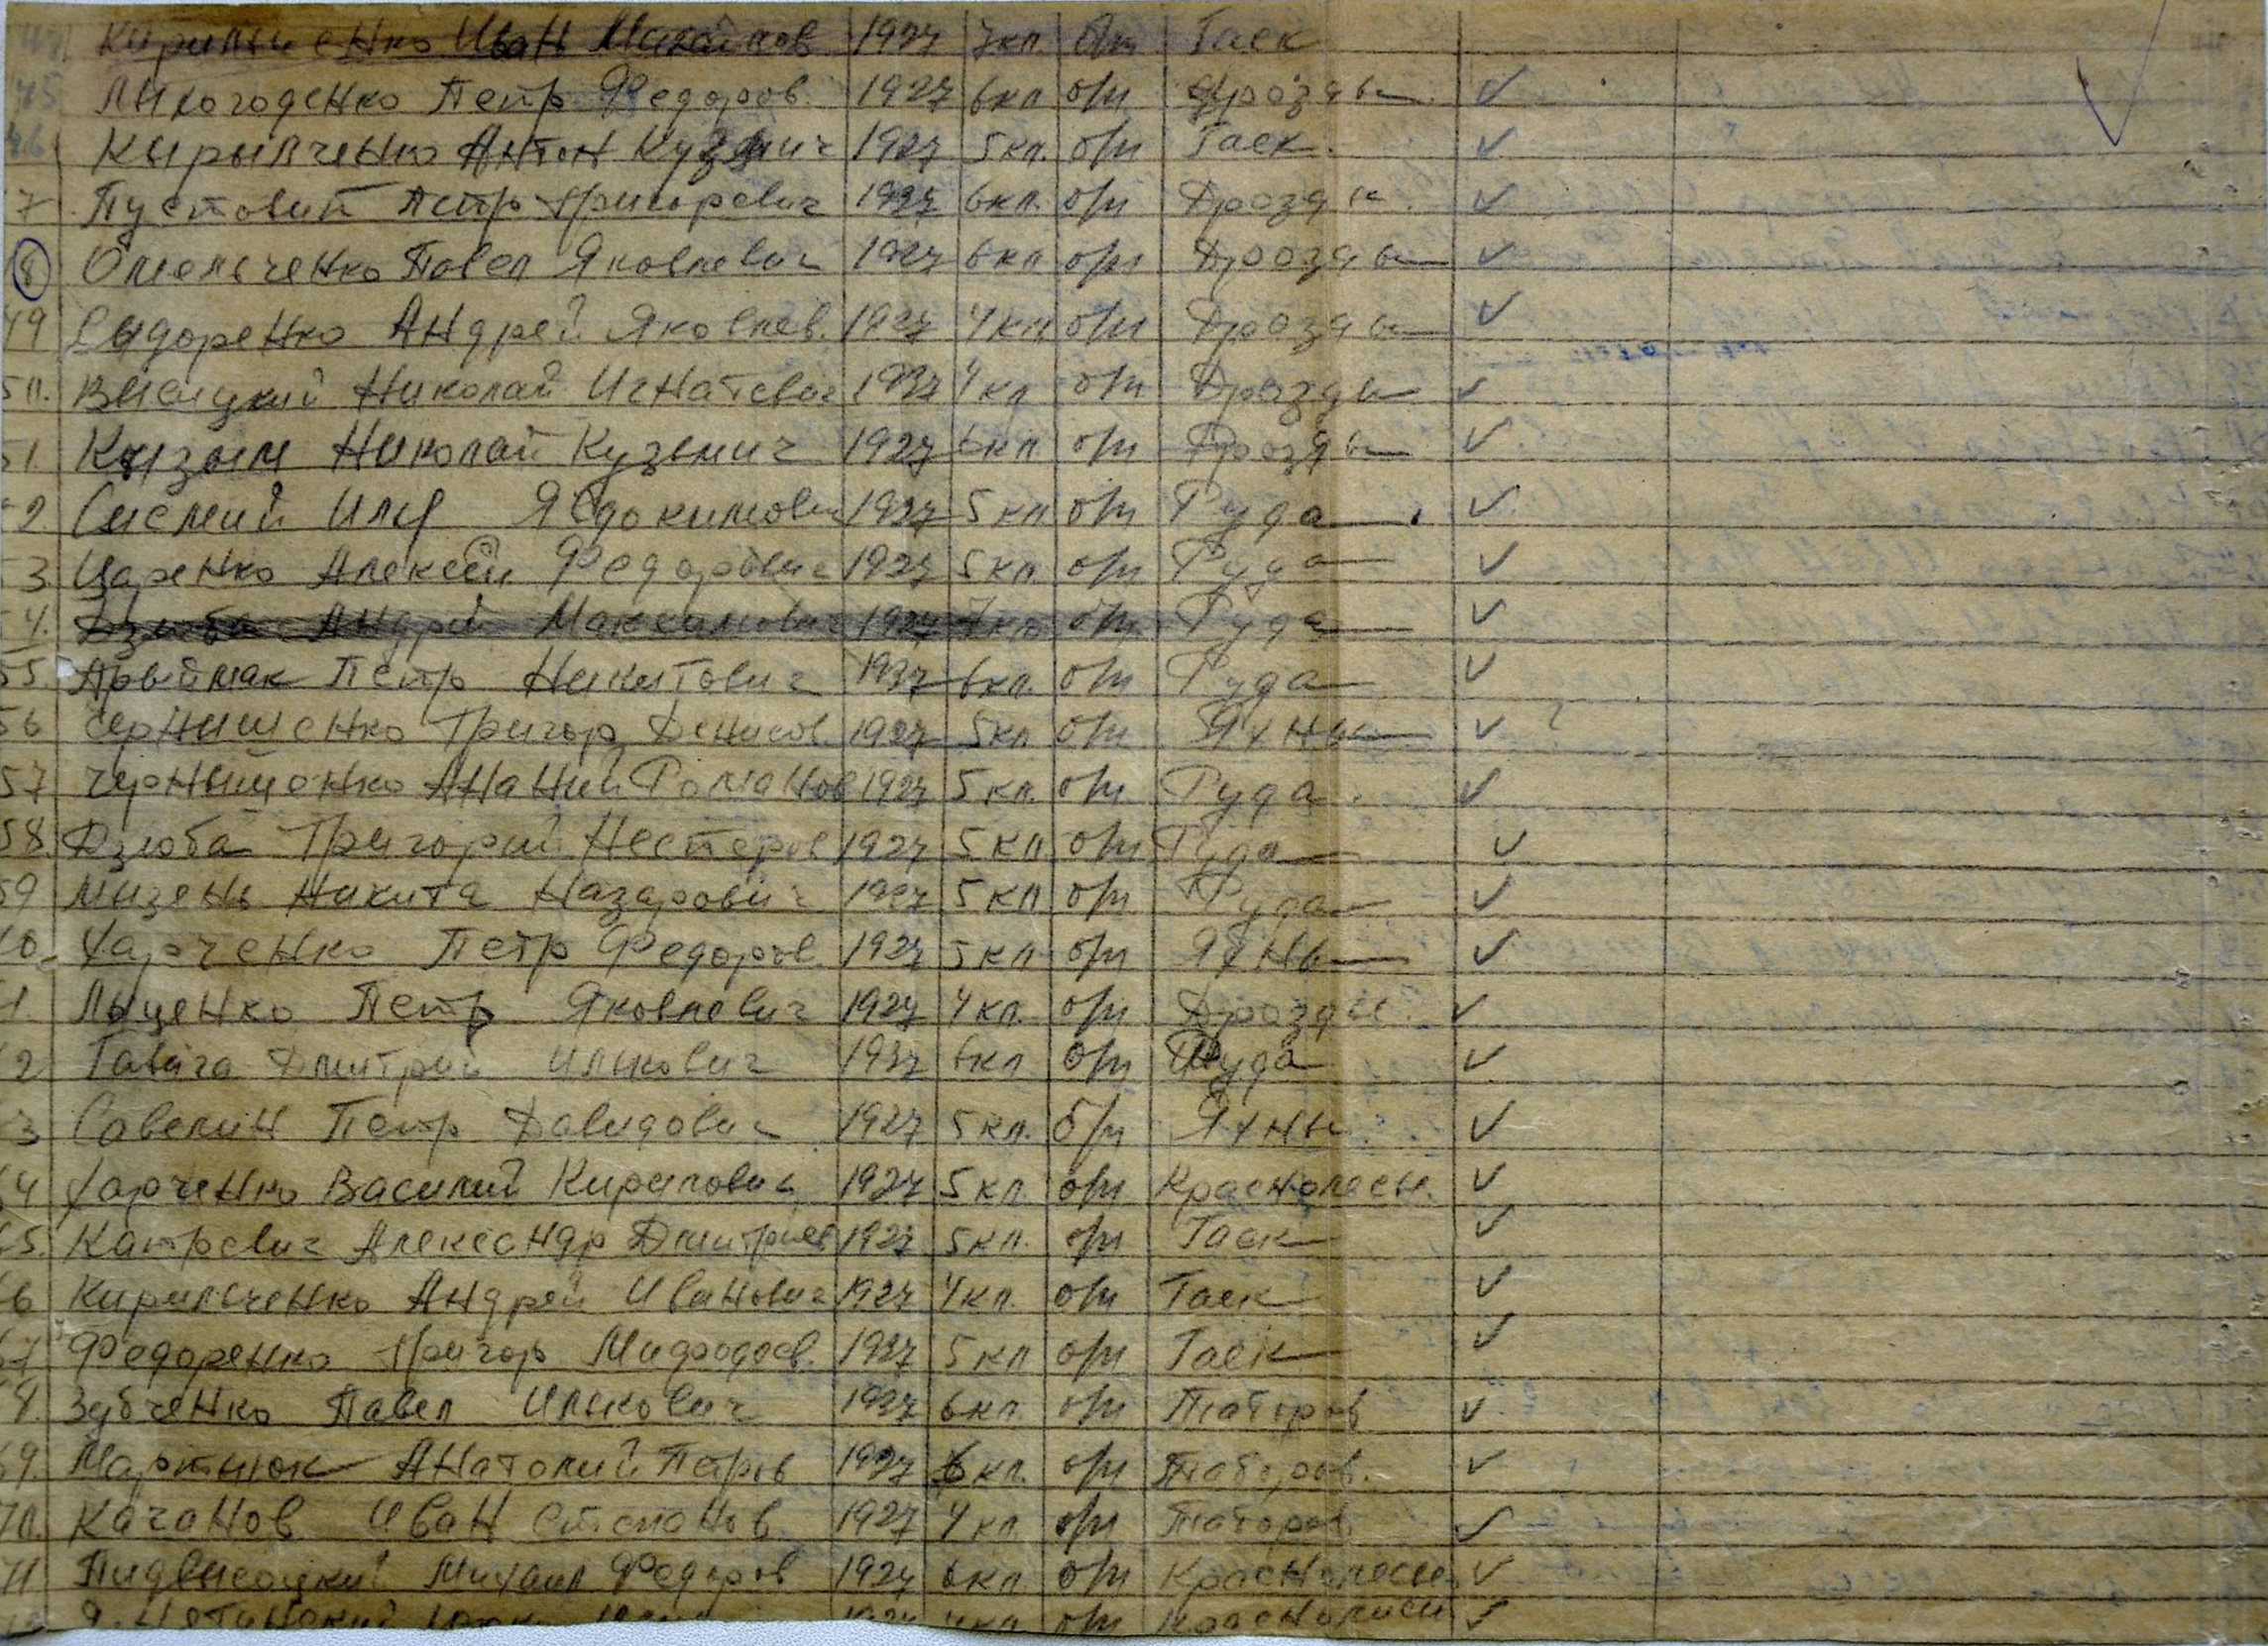 44. Кирильченко Иван Михайлов 1927 7кл. б/п Гаек
45 Лихогоденко Петр Федоров. 1927 6кл б/п Дрозды ✓
46 Кырылченко Антон Кузмич 1927 5кл. б/п Гаек. ✓
7 Пустовит Петр Григоревич 1927 6кл. б/п Дрозды ✓
8 Омельченко Павел Яковлевич 1927 6кл б/п Дрозды ✓
49 Сыдоренко Андрей Яковлев. 1927 4кл б/п Дрозды ✓
50. Высицкий Николай Игнатевич 1927 4кл б/п Дрозды ✓
51. Кызым Николай Кузьмич 1927 6кл б/п Дрозды ✓
52. Илия Явдокимович 1927 5кл б/п Руда ✓
53. Царенко Алексей Федорович 1927 5кл б/п Руда ✓
54. Дзюба Андрей Максимович 1927 7кл б/п Руда ✓
55. Арыймак Петр Никитович 1927 6кл. б/п Руда ✓
56 Чернишенко Григор Денисов 1927 5кл б/п Яхны ✓ ?
57 Чернышенко Ананий Романов 1927 5кл. б/п Руда. ✓
58. Дзюба Григорий Нестеров 1927 5кл б/п Руда ✓
59 Мызень Никита Назарович 1927 5кл б/п Руда ✓
60. Харченко Петр Федоров. 1927 5кл б/п Яхны ✓
1. Лыценко Петр Яковлевич 1927 4кл. б/п Дрозды. ✓
2 Гавага Дмитрий Илькович 1927 6кл б/п Руда ✓
3 Савелин Петр Давидович 1927 5кл. б/п Яхны. ✓
64 Харченко Василий Кирилович 1927 5кл. б/п Краснолесы. ✓
65. Катревич Александр Дмитриев 1927 5кл. б/п Гаек ✓
66 Кирильченко Андрей Иванович 1927 4кл. б/п Гаек ✓
67 Федоренко Григор Мифодоев. 1927 5кл б/п Гаек ✓
8. Зубченко Павел Илькович 1927 6кл. б/п Таборов ✓
69. Мартнюк Анатолий Петров 1927 6кл. б/п Таборов. ✓
70. Качанов Иван Степанов 1927 4кл б/п Таборов. ✓
71 Пидвысоцкий Михаил Федоров 1927 6кл б/п Краснолесы. ✓
1927 4кл б/п Краснолиси ✓